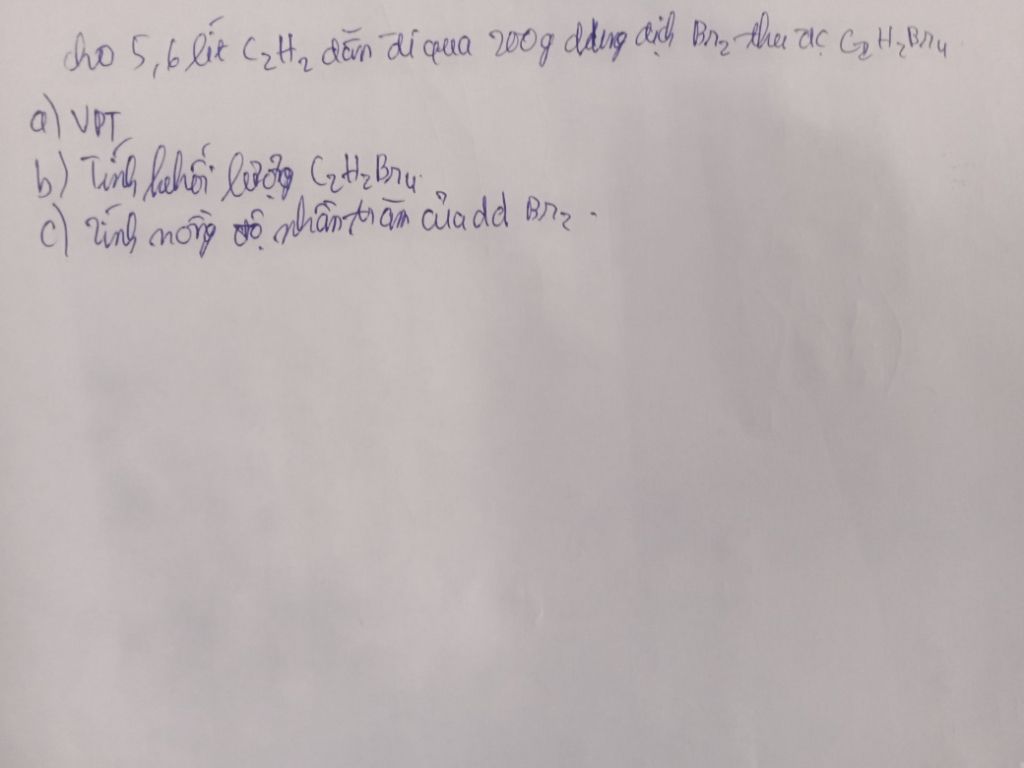 cho 5,6 lít C₂H₂ dẫn đi qua 200g dung dịch Br₂ thu đc C₂H₂Br₄
a) VPT
b) Tính khối lượng C₂H₂Br₄.
c) Tính nồng độ phần trăm của dd Br₂.